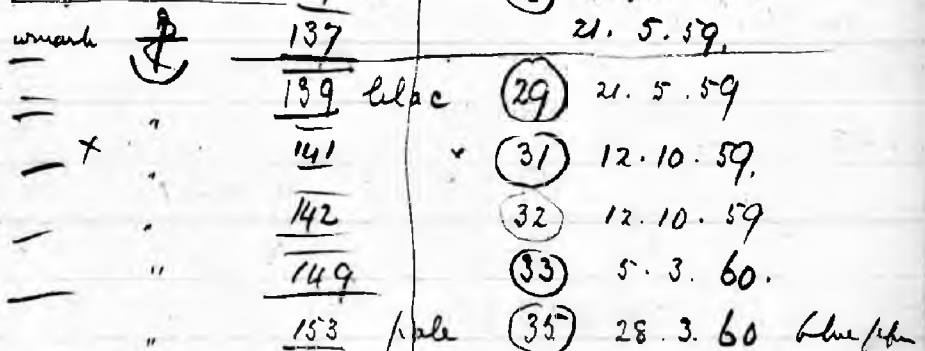 wmark 137 21. 5. 59.
139 lilac 29 21. 5. 59
" 141 31 12. 10. 59.
" 142 32 12. 10. 59
" 149 33 5. 3. 60.
" 153 pale 35 28. 3. 60 blue